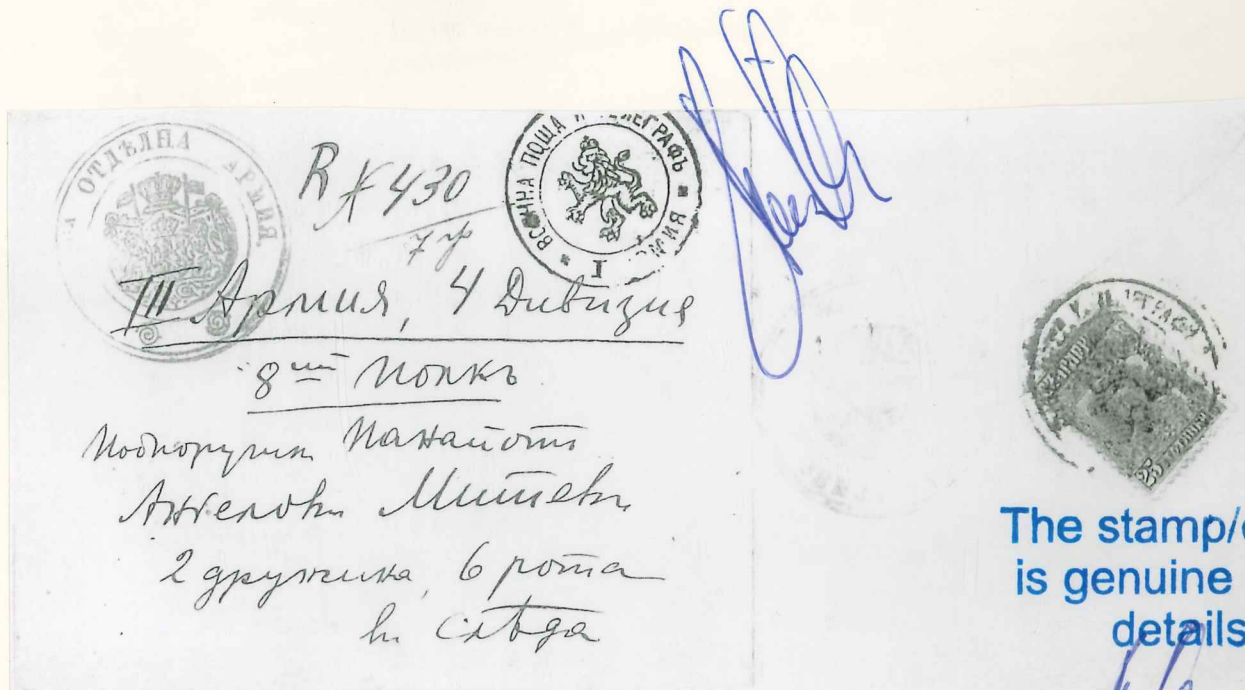 ОТДѢЛНА АРМИЯ
R № 430
7 гр
ВОЕННА ПОЩА И ТЕЛЕГРАФЪ
I
III Армия, 4 Дивизия
8ий Полкъ
Подпоручикъ Панайотъ
Ангеловъ Митевъ
2 дружина, 6 рота
въ Слѣда
25
The stamp/
is genuine
details